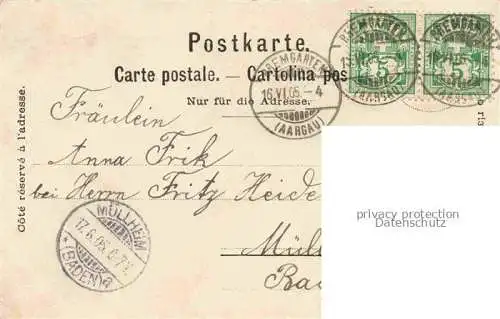 Postkarte.
Carte postale. — Cartolina pos
Nur für die Adresse.
BREMGARTEN
16.VI.05.-4
(AARGAU)
BREMGARTEN
(AARGAU)
5
BREMGARTEN
16.VI.05
(AARGAU)
5
Côté réservé à l'adresse.
Fräulein
Anna Frik
bei Herrn Fritz Heide
Mül
Ba
MÜLLHEIM
17.6.05.
*(BADEN)a
privacy protection
Datenschutz